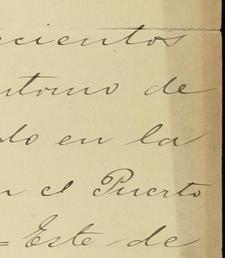 cientos
ntorno de
do en la
n el Puerto
= Este de